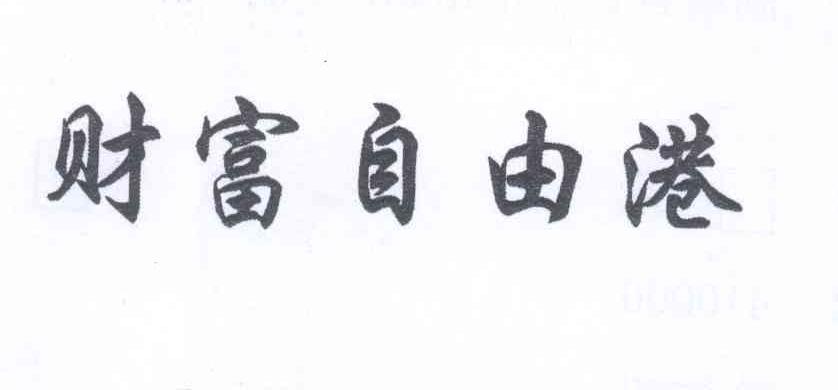 财富自由港